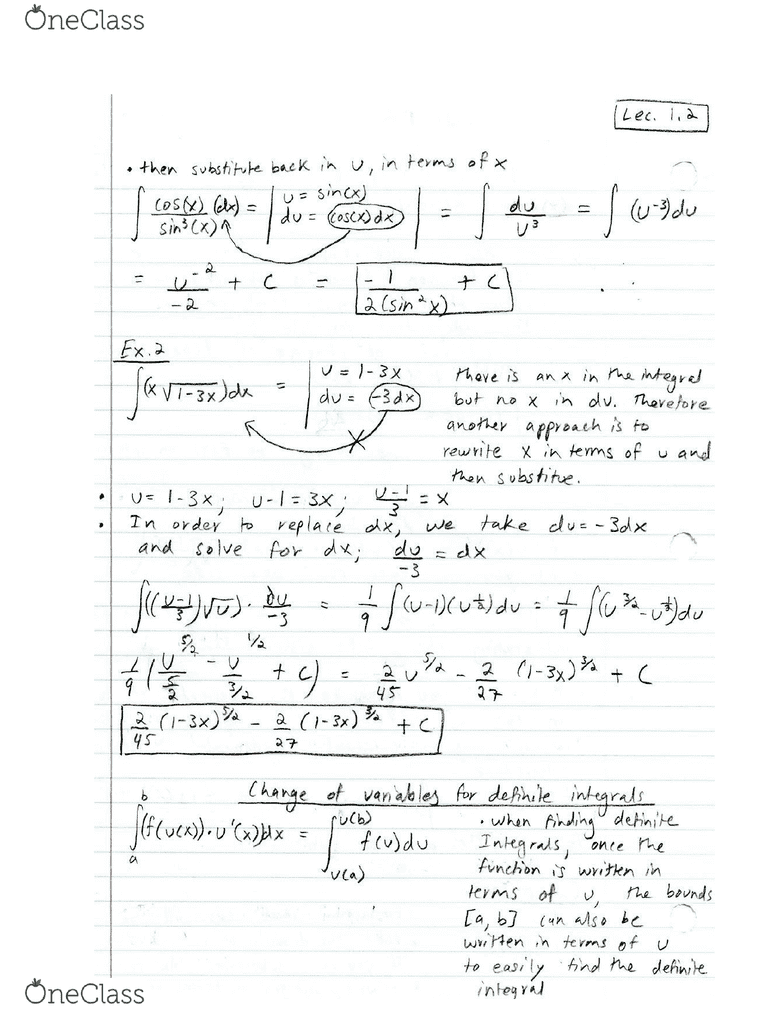 OneClass
Lec. 1.2
• then substitute back in u, in terms of x
∫ cos(x)/sin³(x) (dx) = | u = sin(x) du = cos(x)dx | = ∫ du/u³ = ∫ (u⁻³)du
= u⁻²/-2 + C = -1/2(sin²x) + C
Ex. 2
∫(x √1-3x)dx = | u = 1-3x du = -3dx
there is an x in the integral
but no x in du. Therefore
another approach is to
rewrite x in terms of u and
then substitue.
• u = 1-3x; u-1 = 3x; u-1/3 = x
• In order to replace dx, we take du = -3dx
and solve for dx; du/-3 = dx
∫((u-1/3)√u) · du/-3 = 1/9 ∫(u-1)(u^½)du = 1/9 ∫(u^3/2 - u^½)du
1/9 (u^5/2/5/2 - u^1/2/3/2 + C) = 2/45 u^5/2 - 2/27 (1-3x)^3/2 + C
2/45 (1-3x)^5/2 - 2/27 (1-3x)^3/2 + C
Change of variables for definite integrals
b∫a (f(u(x))·u'(x))dx = u(b)∫u(a) f(u)du
• when finding definite
Integrals, once the
function is written in
terms of u, the bounds
[a, b] can also be
written in terms of u
to easily find the definite
integral
OneClass